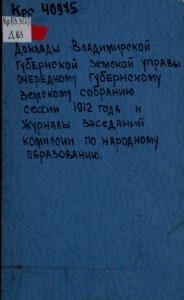 Крс 40975
Кр63.3(2)
Д 63
Доклады Владимирской
Губернской земской управы
очередному губернскому
земскому собранию
сессии 1912 года и
Журналы заседаний
комиссии по народному
образованию.